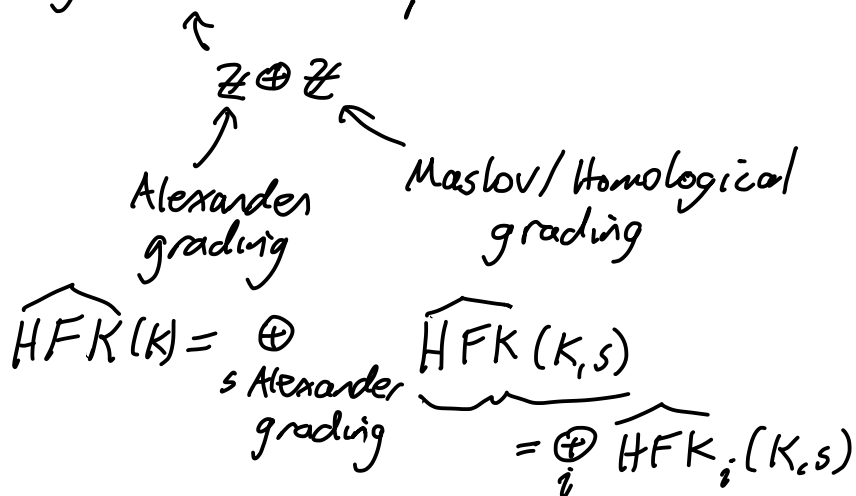 ℤ ⊕ ℤ
Alexander grading
Maslov/Homological grading
\widehat{HFK}(K) = ⊕_{s Alexander grading} \widehat{HFK}(K,s)
= ⊕_i \widehat{HFK}_i(K,s)